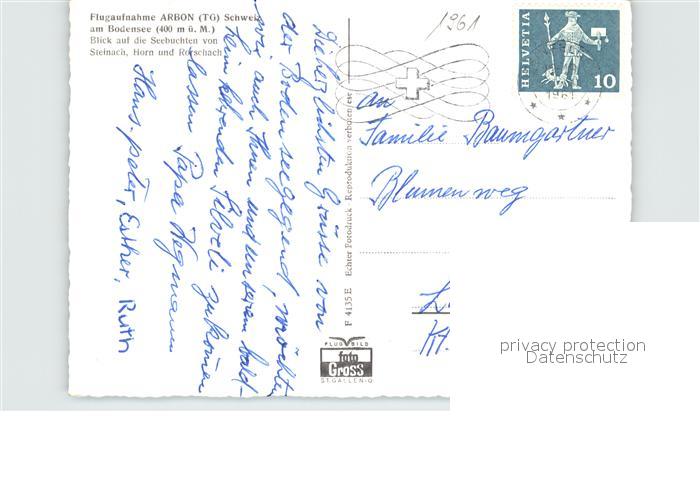 Flugaufnahme ARBON (TG) Schweiz
am Bodensee (400 m ü. M.)
Blick auf die Seebuchten von
Steinach, Horn und Rorschach
Die herzlichsten Grüsse von
der Bodenseegegend, möchte
wir auch Ihnen und unserem bald-
heimkehrenden Silveli zukommen
lassen Papa Wegmann
Hans-peter, Esther, Ruth
F 4135 E Echter Fotodruck Reproduktion verboten
FLUG BILD
foto
Gross
ST. GALLEN-O
1961
HELVETIA
10
1961
an
Familie Baumgartner
Blumenweg
L
Kt.
privacy protection
Datenschutz